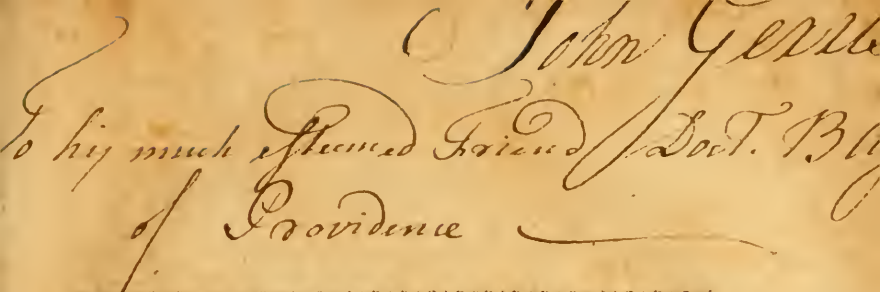 John
To his much esteemed Friend Doct.
of Providence